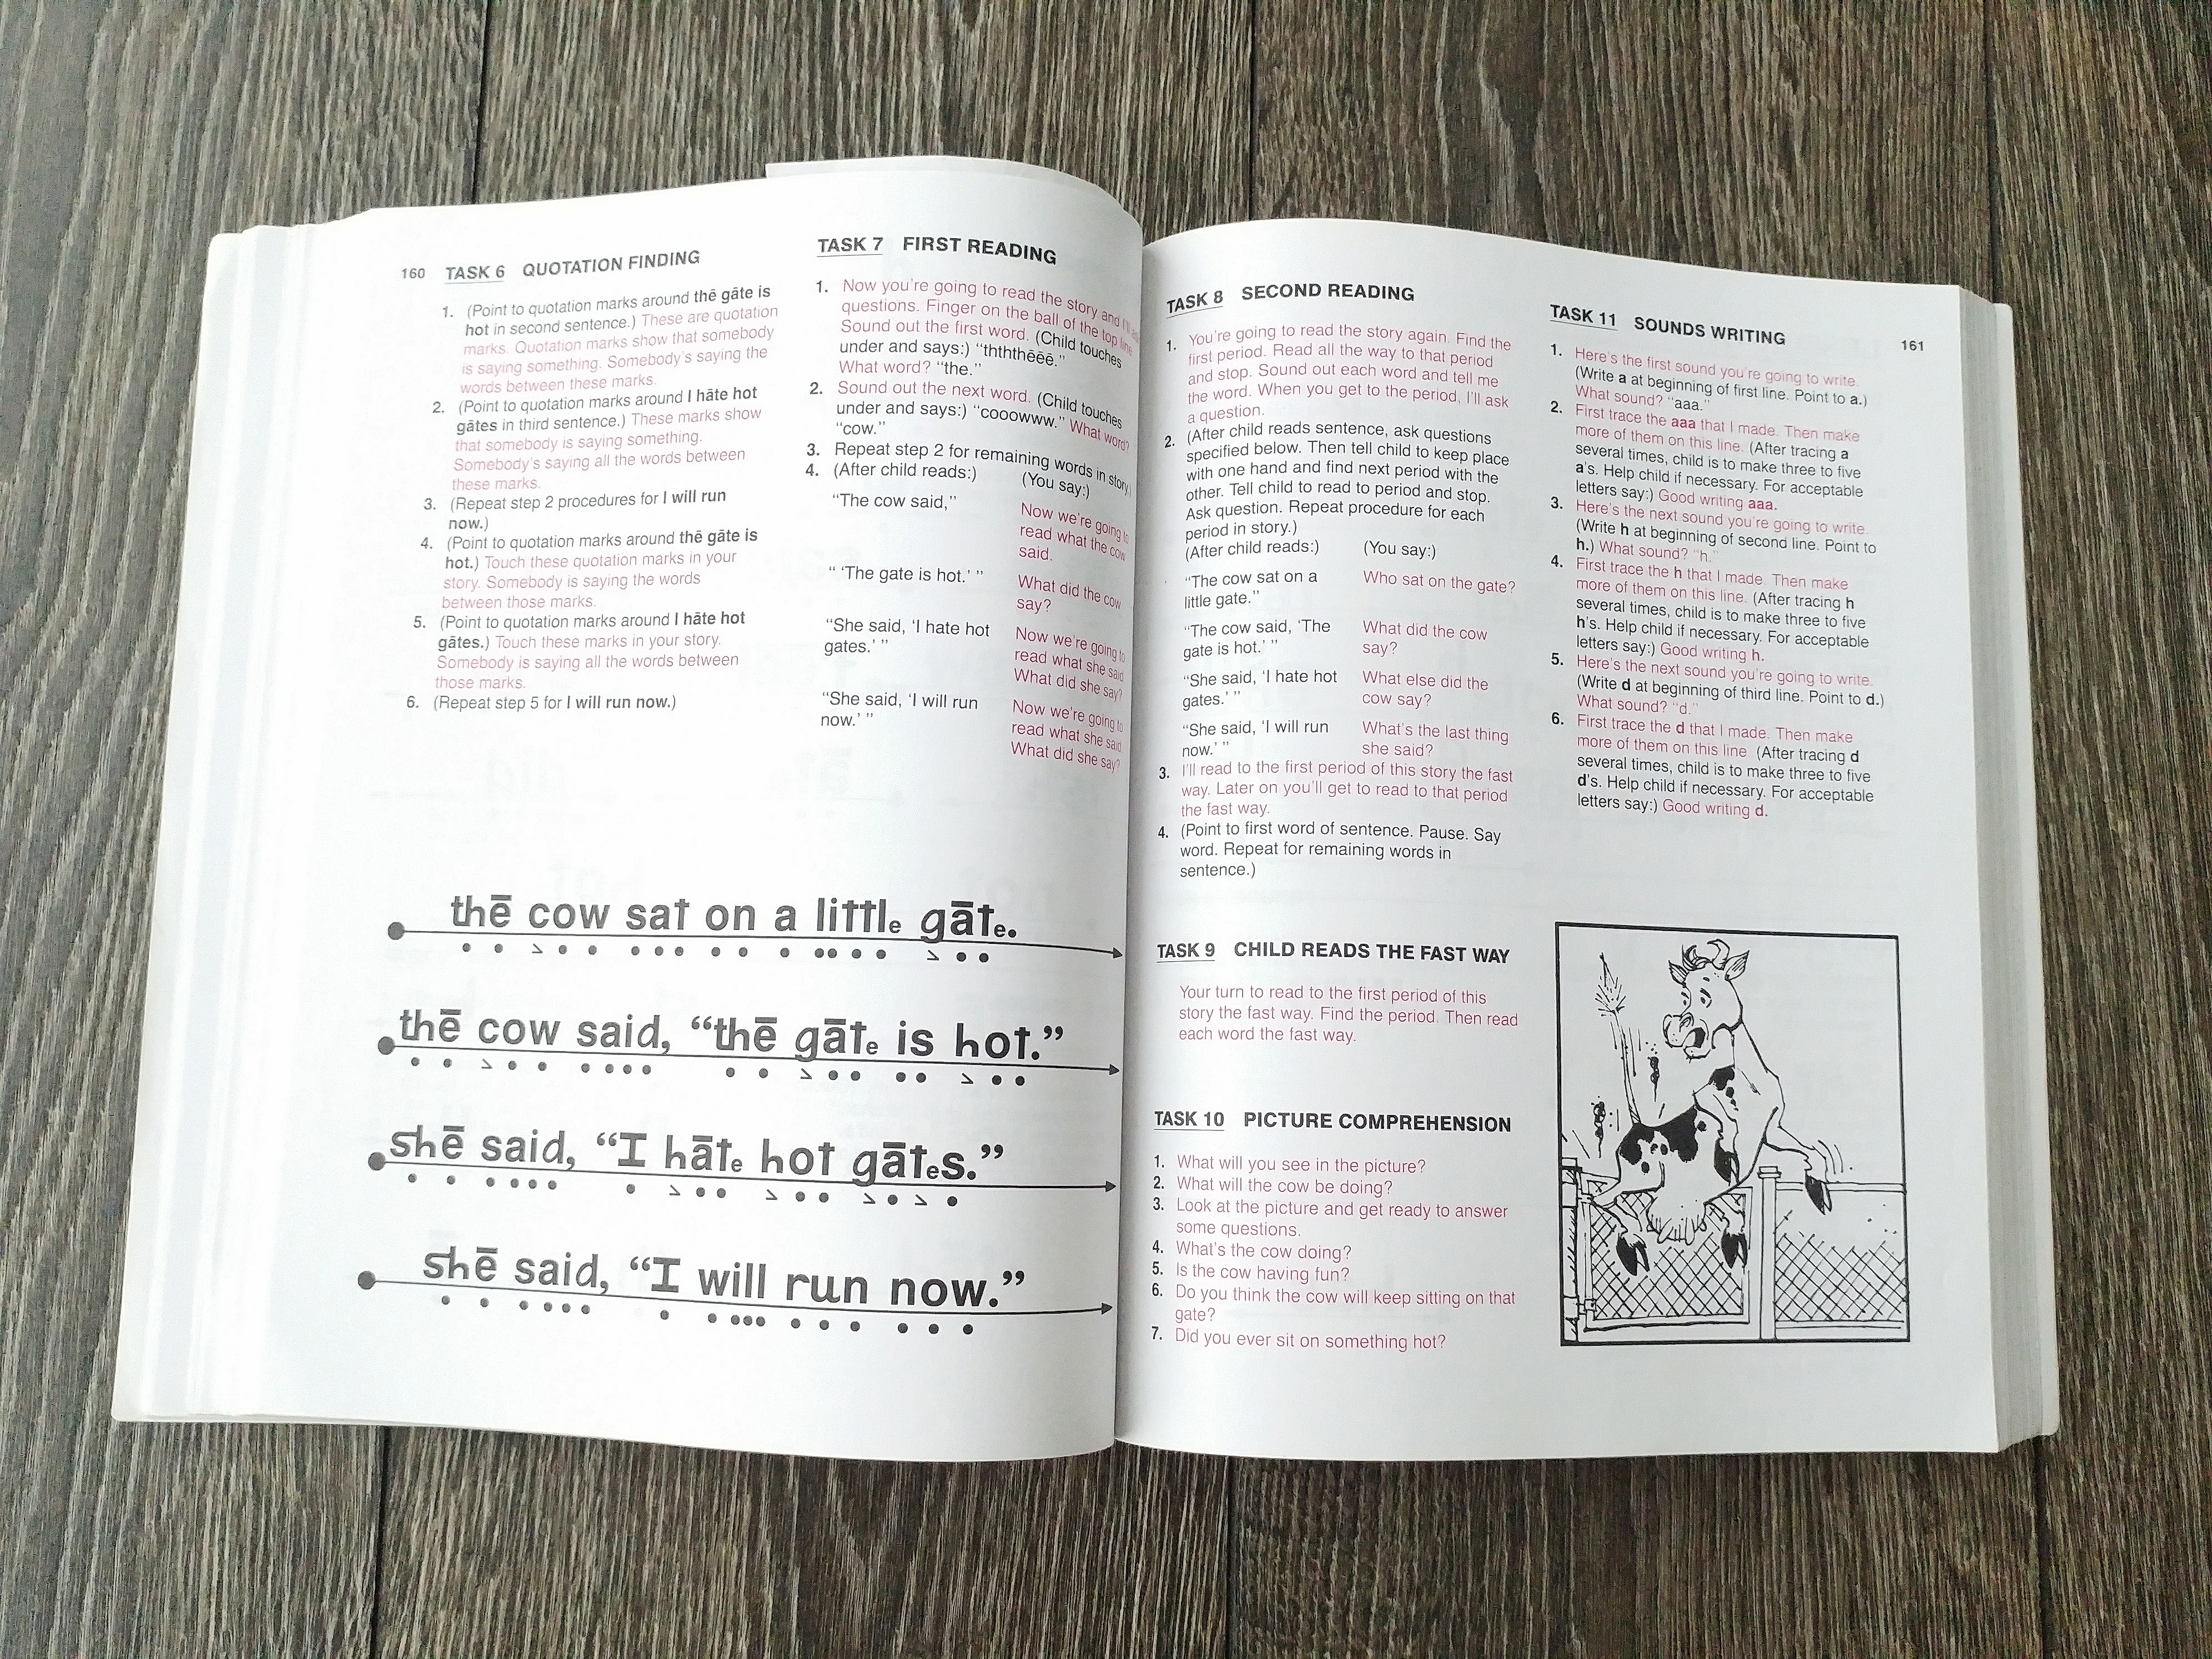 160 TASK 6 QUOTATION FINDING
1. (Point to quotation marks around thē gāte is
hot in second sentence.) These are quotation
marks. Quotation marks show that somebody
is saying something. Somebody's saying the
words between these marks.
2. (Point to quotation marks around I hāte hot
gātes in third sentence.) These marks show
that somebody is saying something.
Somebody's saying all the words between
these marks.
3. (Repeat step 2 procedures for I will run
now.)
4. (Point to quotation marks around thē gāte is
hot.) Touch these quotation marks in your
story. Somebody is saying the words
between those marks.
5. (Point to quotation marks around I hāte hot
gātes.) Touch these marks in your story.
Somebody is saying all the words between
those marks.
6. (Repeat step 5 for I will run now.)
TASK 7 FIRST READING
1. Now you're going to read the story and
questions. Finger on the ball of the top line
Sound out the first word. (Child touches
under and says:) “thththēēē.”
What word? “the.”
2. Sound out the next word. (Child touches
under and says:) “cooowww.” What word?
“cow.”
3. Repeat step 2 for remaining words in story.
4. (After child reads:) (You say:)
“The cow said,” Now we're going to
read what the cow
said.
“ ‘The gate is hot.’ ” What did the cow
say?
“She said, ‘I hate hot Now we're going to
gates.’ ” read what she said
What did she say?
“She said, ‘I will run Now we're going to
now.’ ” read what she said
What did she say?
thē cow sat on a little gāte.
thē cow said, “thē gāte is hot.”
shē said, “I hāte hot gātes.”
shē said, “I will run now.”
TASK 8 SECOND READING
1. You're going to read the story again. Find the
first period. Read all the way to that period
and stop. Sound out each word and tell me
the word. When you get to the period, I'll ask
a question.
2. (After child reads sentence, ask questions
specified below. Then tell child to keep place
with one hand and find next period with the
other. Tell child to read to period and stop.
Ask question. Repeat procedure for each
period in story.)
(After child reads:) (You say:)
“The cow sat on a Who sat on the gate?
little gate.”
“The cow said, ‘The What did the cow
gate is hot.’ ” say?
“She said, ‘I hate hot What else did the
gates.’ ” cow say?
“She said, ‘I will run What's the last thing
now.’ ” she said?
3. I'll read to the first period of this story the fast
way. Later on you'll get to read to that period
the fast way.
4. (Point to first word of sentence. Pause. Say
word. Repeat for remaining words in
sentence.)
TASK 9 CHILD READS THE FAST WAY
Your turn to read to the first period of this
story the fast way. Find the period. Then read
each word the fast way.
TASK 10 PICTURE COMPREHENSION
1. What will you see in the picture?
2. What will the cow be doing?
3. Look at the picture and get ready to answer
some questions.
4. What's the cow doing?
5. Is the cow having fun?
6. Do you think the cow will keep sitting on that
gate?
7. Did you ever sit on something hot?
TASK 11 SOUNDS WRITING 161
1. Here's the first sound you're going to write.
(Write a at beginning of first line. Point to a.)
What sound? “aaa.”
2. First trace the aaa that I made. Then make
more of them on this line. (After tracing a
several times, child is to make three to five
a's. Help child if necessary. For acceptable
letters say:) Good writing aaa.
3. Here's the next sound you're going to write.
(Write h at beginning of second line. Point to
h.) What sound? “h.”
4. First trace the h that I made. Then make
more of them on this line. (After tracing h
several times, child is to make three to five
h's. Help child if necessary. For acceptable
letters say:) Good writing h.
5. Here's the next sound you're going to write.
(Write d at beginning of third line. Point to d.)
What sound? “d.”
6. First trace the d that I made. Then make
more of them on this line (After tracing d
several times, child is to make three to five
d's. Help child if necessary. For acceptable
letters say:) Good writing d.